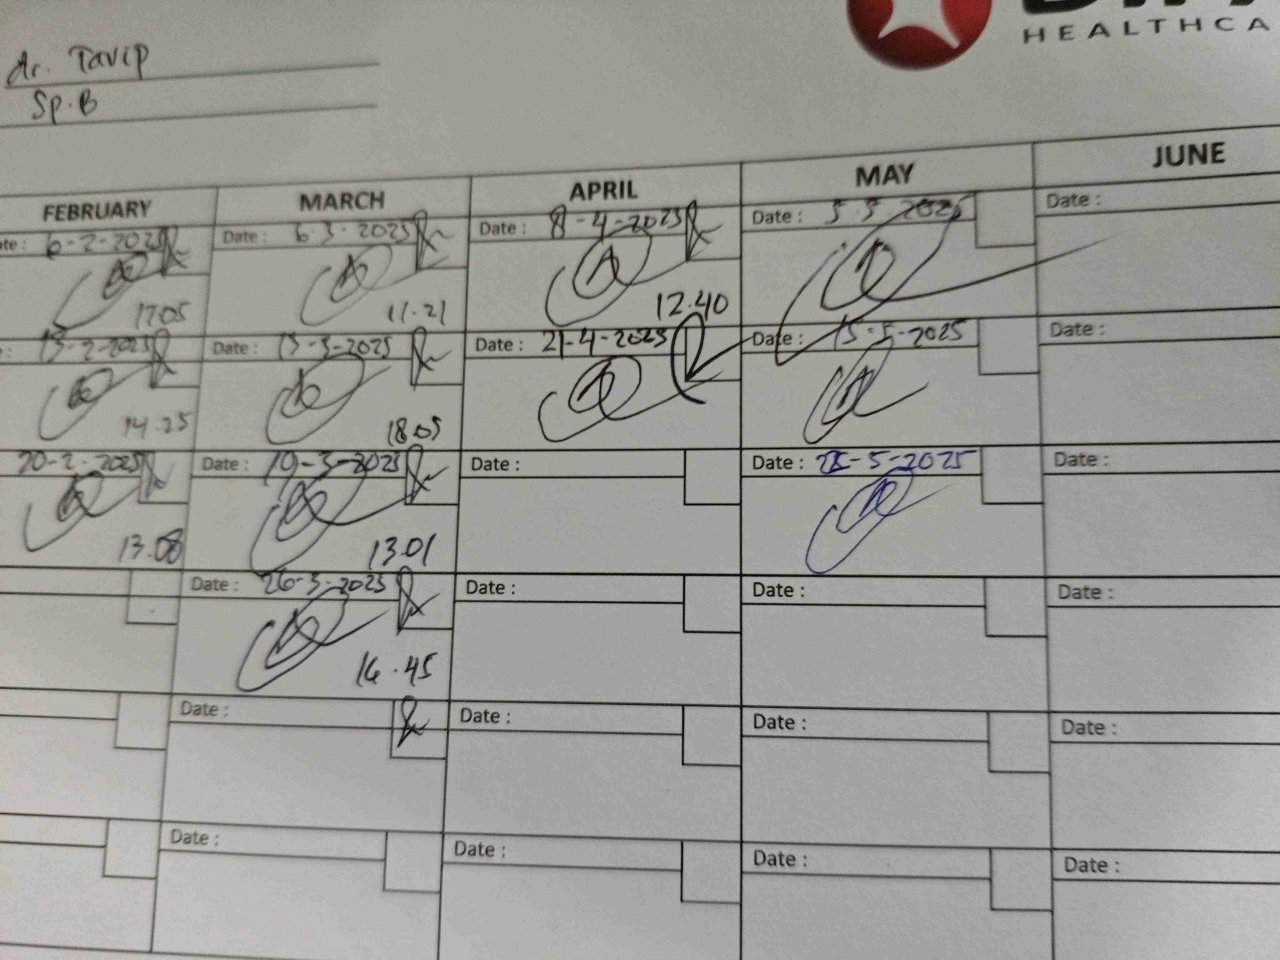 dr. Tavip
Sp.B
HEALTHCA
FEBRUARY MARCH APRIL MAY JUNE
te: 6-2-2025 Date: 6-3-2025 Date: 8-4-2025 Date: 5-5-2025 Date:
17.05 11.21 12.40
13-2-2025 Date: 13-3-2025 Date: 21-4-2025 Date: 15-5-2025 Date:
14.25 18.05
20-2-2025 Date: 19-3-2025 Date: Date: -5-2025 Date:
13.08 13.01
Date: 26-3-2025 Date: Date: Date:
16.45
Date: Date: Date: Date:
Date: Date: Date: Date: